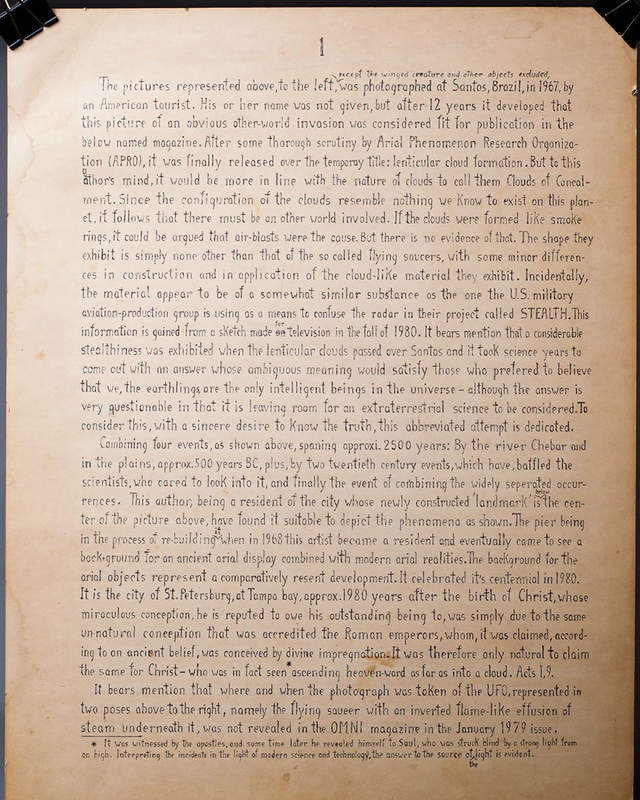 1
except the winged creature and other objects excluded,
The pictures represented above, to the left, was photographed at Santos, Brazil, in 1967, by
an American tourist. His or her name was not given, but after 12 years it developed that
this picture of an obvious other-world invasion was considered fit for publication in the
below named magazine. After some thorough scrutiny by Arial Phenomenon Research Organiza-
tion (APRO), it was finally released over the temporay title: lenticular cloud formation. But to this
author's mind, it would be more in line with the nature of clouds to call them Clouds of Conceal-
ment. Since the configuration of the clouds resemble nothing we know to exist on this plan-
et, it follows that there must be an other world involved. If the clouds were formed like smoke
rings, it could be argued that air-blasts were the cause. But there is no evidence of that. The shape they
exhibit is simply none other than that of the so called flying saucers, with some minor differen-
ces in construction and in application of the cloud-like material they exhibit. Incidentally,
the material appear to be of a somewhat similar substance as the one the U.S. military
aviation-production group is using as a means to confuse the radar in their project called STEALTH. This
information is gained from a sketch made for television in the fall of 1980. It bears mention that a considerable
stealthiness was exhibited when the lenticular clouds passed over Santos and it took science years to
come out with an answer whose ambiguous meaning would satisfy those who prefered to believe
that we, the earthlings, are the only intelligent beings in the universe – although the answer is
very questionable in that it is leaving room for an extraterrestrial science to be considered. To
consider this, with a sincere desire to know the truth, this abbreviated attempt is dedicated.
Combining four events, as shown above, spaning approxi. 2500 years: By the river Chebar and
in the plains, approx. 500 years BC, plus, by two twentieth century events, which have, baffled the
scientists, who cared to look into it, and finally the event of combining the widely seperated occur-
rences. This author, being a resident of the city whose newly constructed 'landmark' below is the cen-
ter of the picture above, have found it suitable to depict the phenomena as shown. The pier being
in the process of re-building it when in 1968 this artist became a resident and eventually came to see a
back-ground for an ancient arial display combined with modern arial realities. The background for the
arial objects represent a comparatively resent development. It celebrated it's centennial in 1980.
It is the city of St. Petersburg, at Tampa bay, approx. 1980 years after the birth of Christ, whose
miraculous conception, he is reputed to owe his outstanding being to, was simply due to the same
un-natural conception that was accredited the Roman emperors, whom, it was claimed, accord-
ing to an ancient belief, was conceived by divine impregnation. It was therefore only natural to claim
the same for Christ – who was in fact seen * ascending heaven-ward as far as into a cloud. Acts 1,9.
It bears mention that where and when the photograph was taken of the UFO, represented in
two poses above to the right, namely the flying saucer with an inverted flame-like effusion of
steam underneath it, was not revealed in the OMNI magazine in the January 1979 issue.
* It was witnessed by the apostles, and some time later he revealed himself to Saul, who was struck blind by a strong light from
on high. Interpreting the incidents in the light of modern science and technology, the answer to the source of the light is evident.